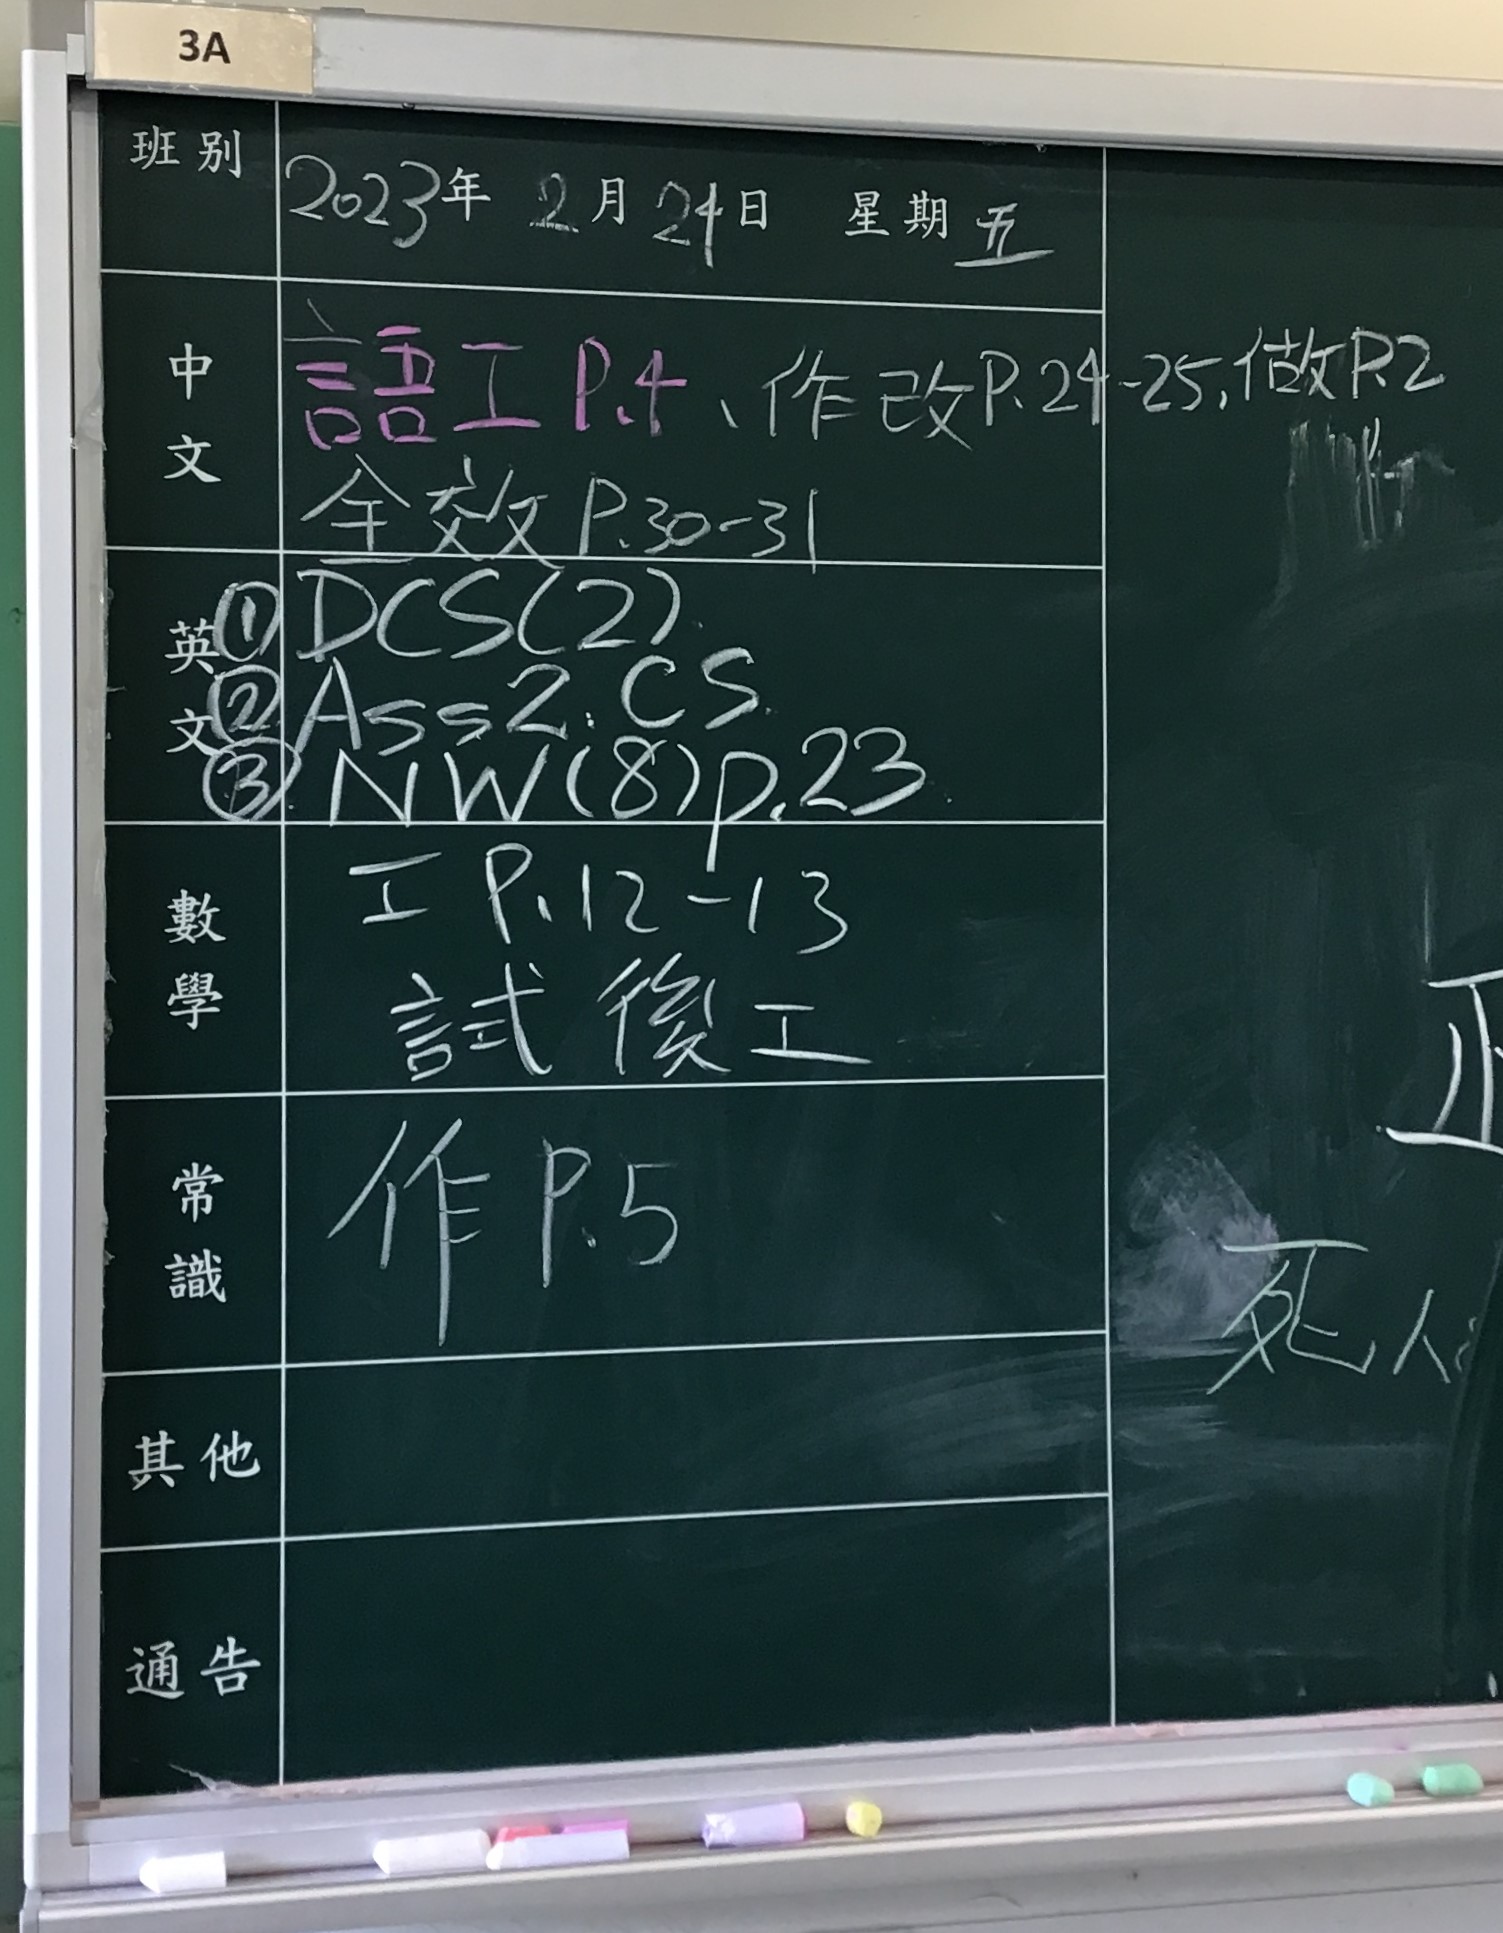 3A
班別 2023年 2月 24日 星期五
中文 語工 P.4、作改P.24-25,做P.2
全效 P.30-31
英文 ① DCS(2)
② Ass2: CS
③ NW(8)p.23
數學 工 P.12-13
試後工
正
常識 作 P.5
死人
其他
通告